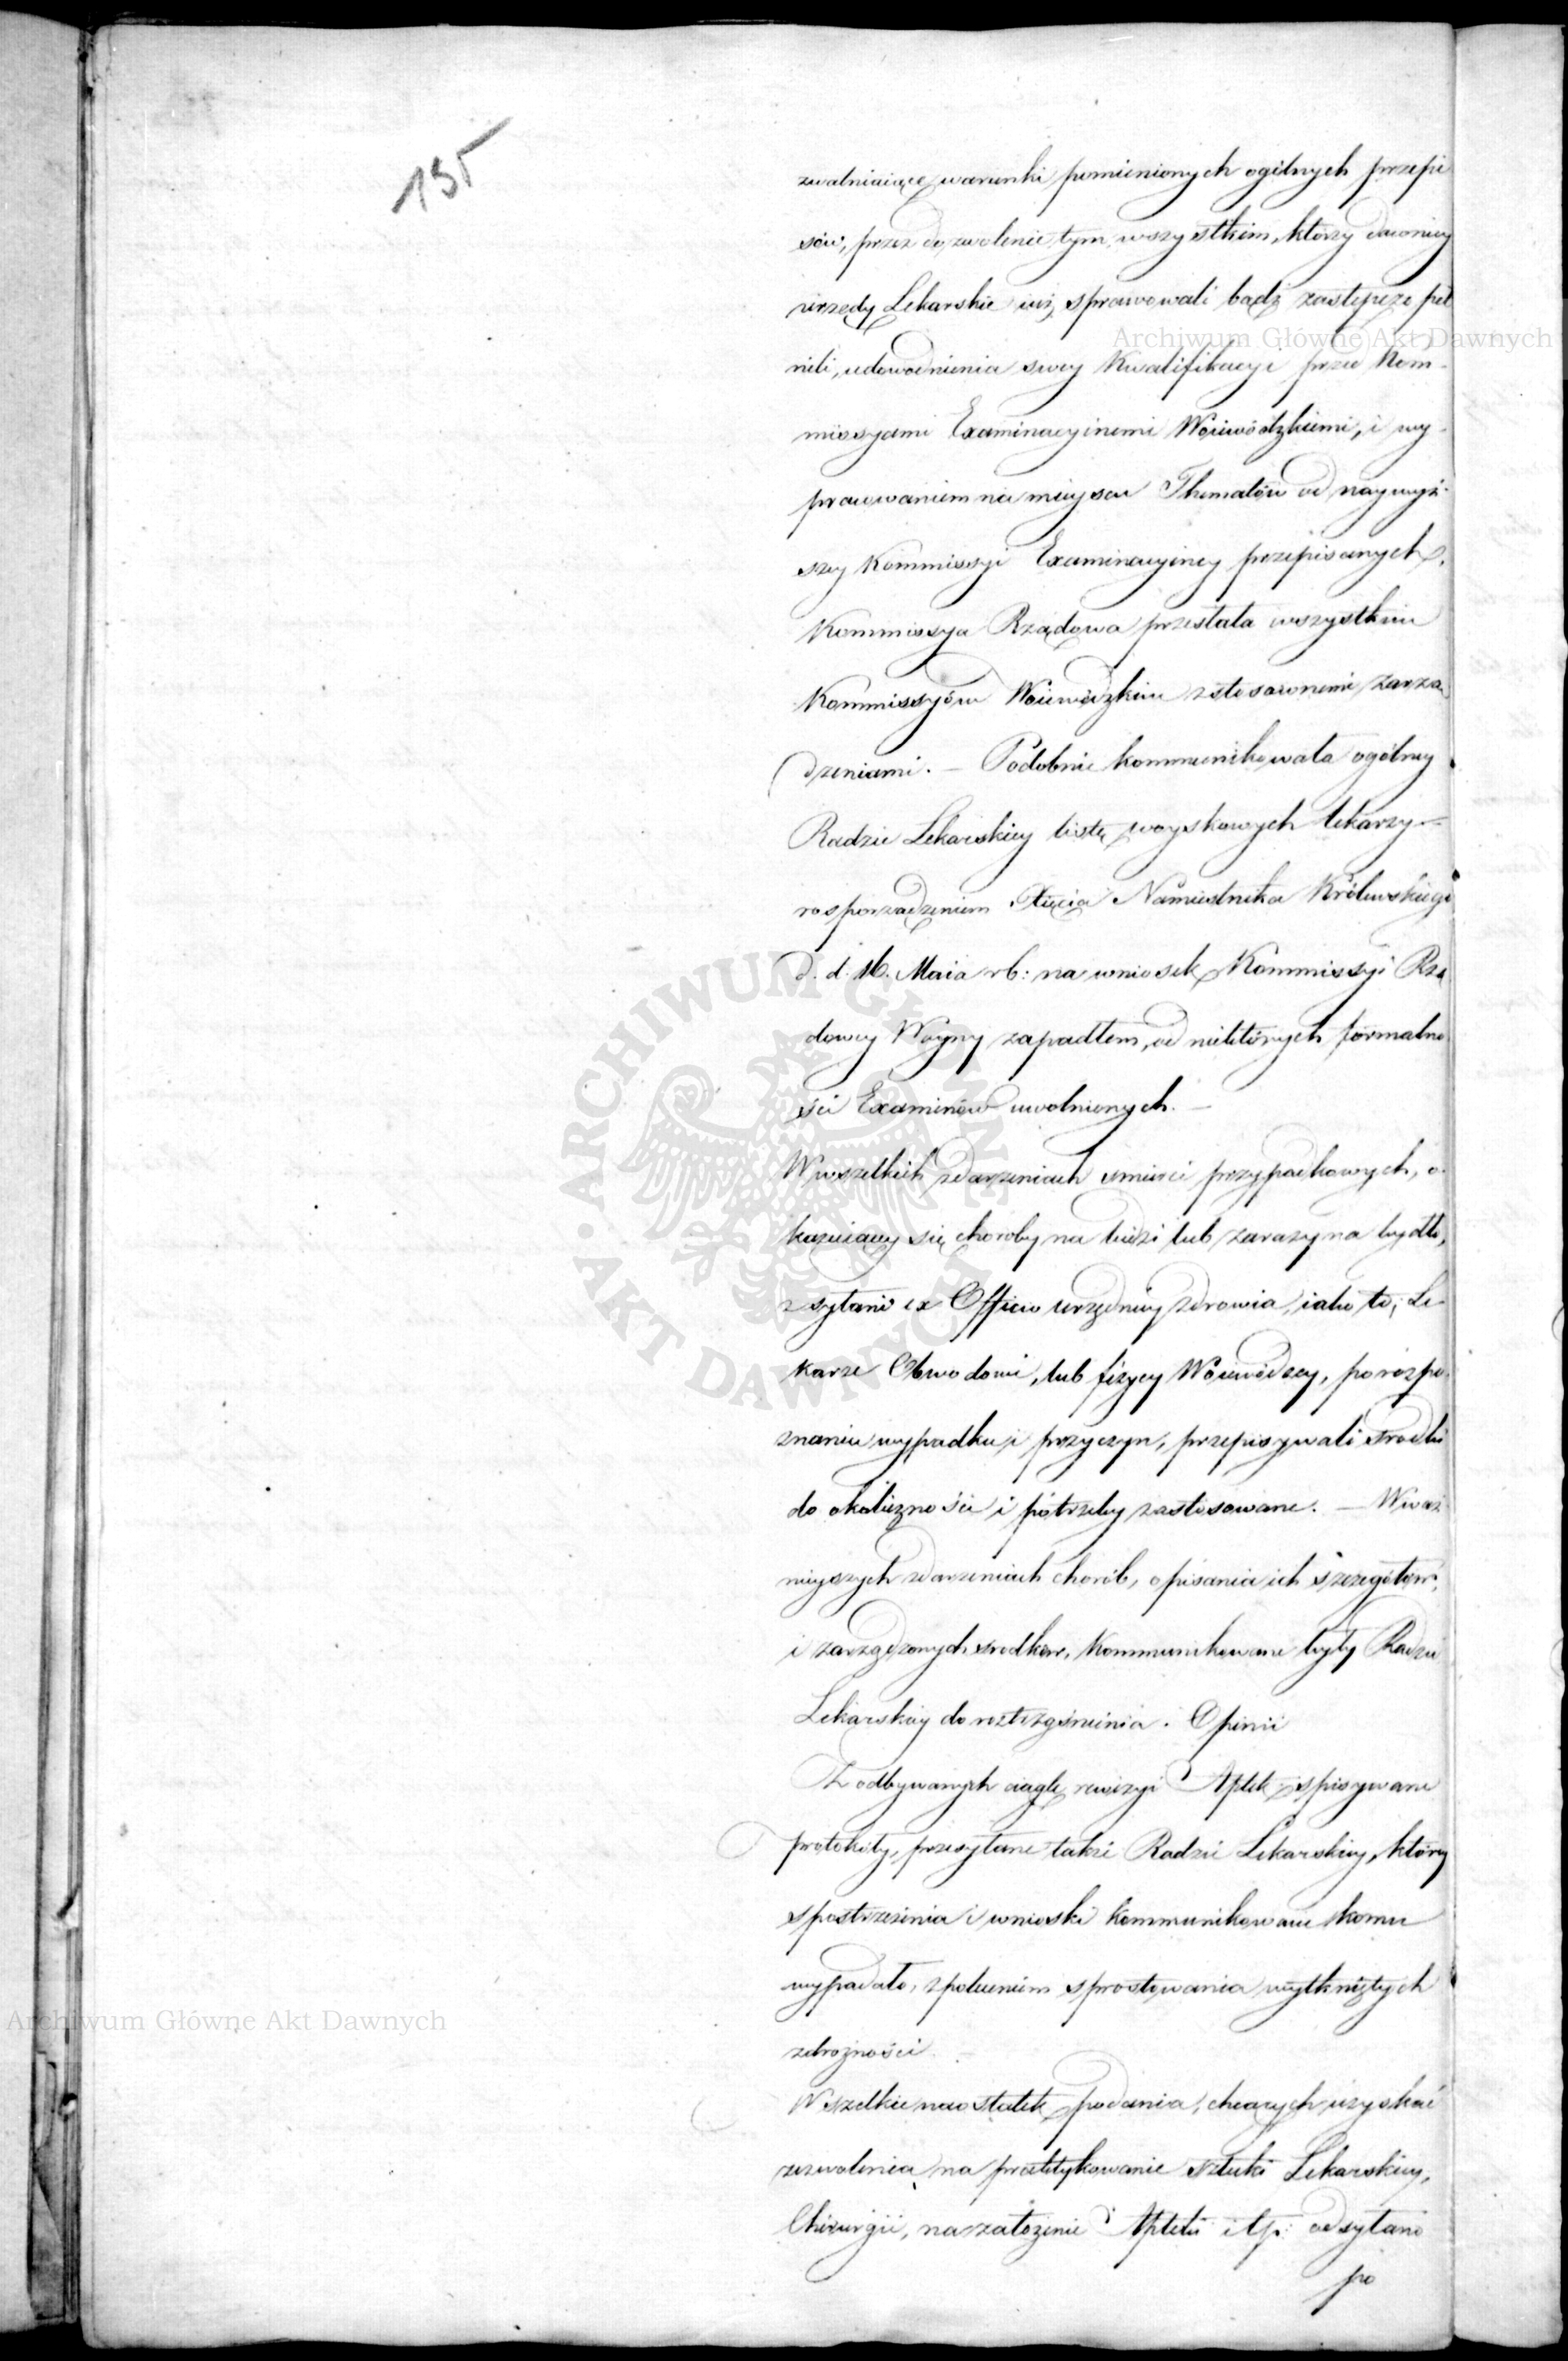 135
zwalniaiące warunki pomienionych ogólnych przepi
sów, przez dozwolenie tym wszystkim, którzy dawniey
urzędy Lekarskie iuż sprawowali bądź zastępczo peł
nili, udowodnienia swey Kwalifikacyi przed Kom-
missyami Examinacyinemi Woiewódzkiemi, i wy-
pracowaniem na mieyscu Thematów od naywyż-
szey Kommissyi Examinacyiney przepisanych,
Kommissya Rządowa przesłała wszystkim
Kommissyóm Woiewódzkim z stosownemi zarzą
dzeniami. — Podobnie kommunikowała ogólney
Radzie Lekarskiey listę woyskowych lekarzy
rosporządzeniem Xięcia Namiestnika Królewskiego
d. d. 16. Maia rb: na wniosek Kommissyi Rzą
dowey Woyny zapadłem, od niektórych formalno
ści Examinów uwolnionych. —
W wszelkich zdarzeniach śmierci przypadkowych, o-
kazuiącey się choroby na ludzi lub zarazy na bydło,
zsyłani ex Officio urzędnicy zdrowia, iako to; Le-
karze Obwodowi, lub fizycy Woiewódzcy, po rozpo-
znaniu wypadku i przyczyn, przepisywali środki
do okoliczności i potrzeby zastosowane. — W waż
nieyszych zdarzeniach chorób, opisania ich szczegółów,
i zarządzonych środków, Kommunikowane były Radzie
Lekarskiey do roztrząśnienia i Opinii
Z odbywanych ciągle rewizyi Aptek spisywane
protokóły, przesyłane także Radzie Lekarskiey, którey
spostrzeżenia i wnioski kommunikowane komu
wypadało, z poleceniem sprostowania wytkniętych
zdrożności. —
Wszelkie naostatek podania, chcących uzyskać
zezwolenia na praktykowanie sztuki Lekarskiey,
Chirurgii, na założenie Apteki itp: odsyłano
po
Archiwum Główne Akt Dawnych
Archiwum Główne Akt Dawnych
ARCHIWUM GŁÓWNE • AKT DAWNYCH •